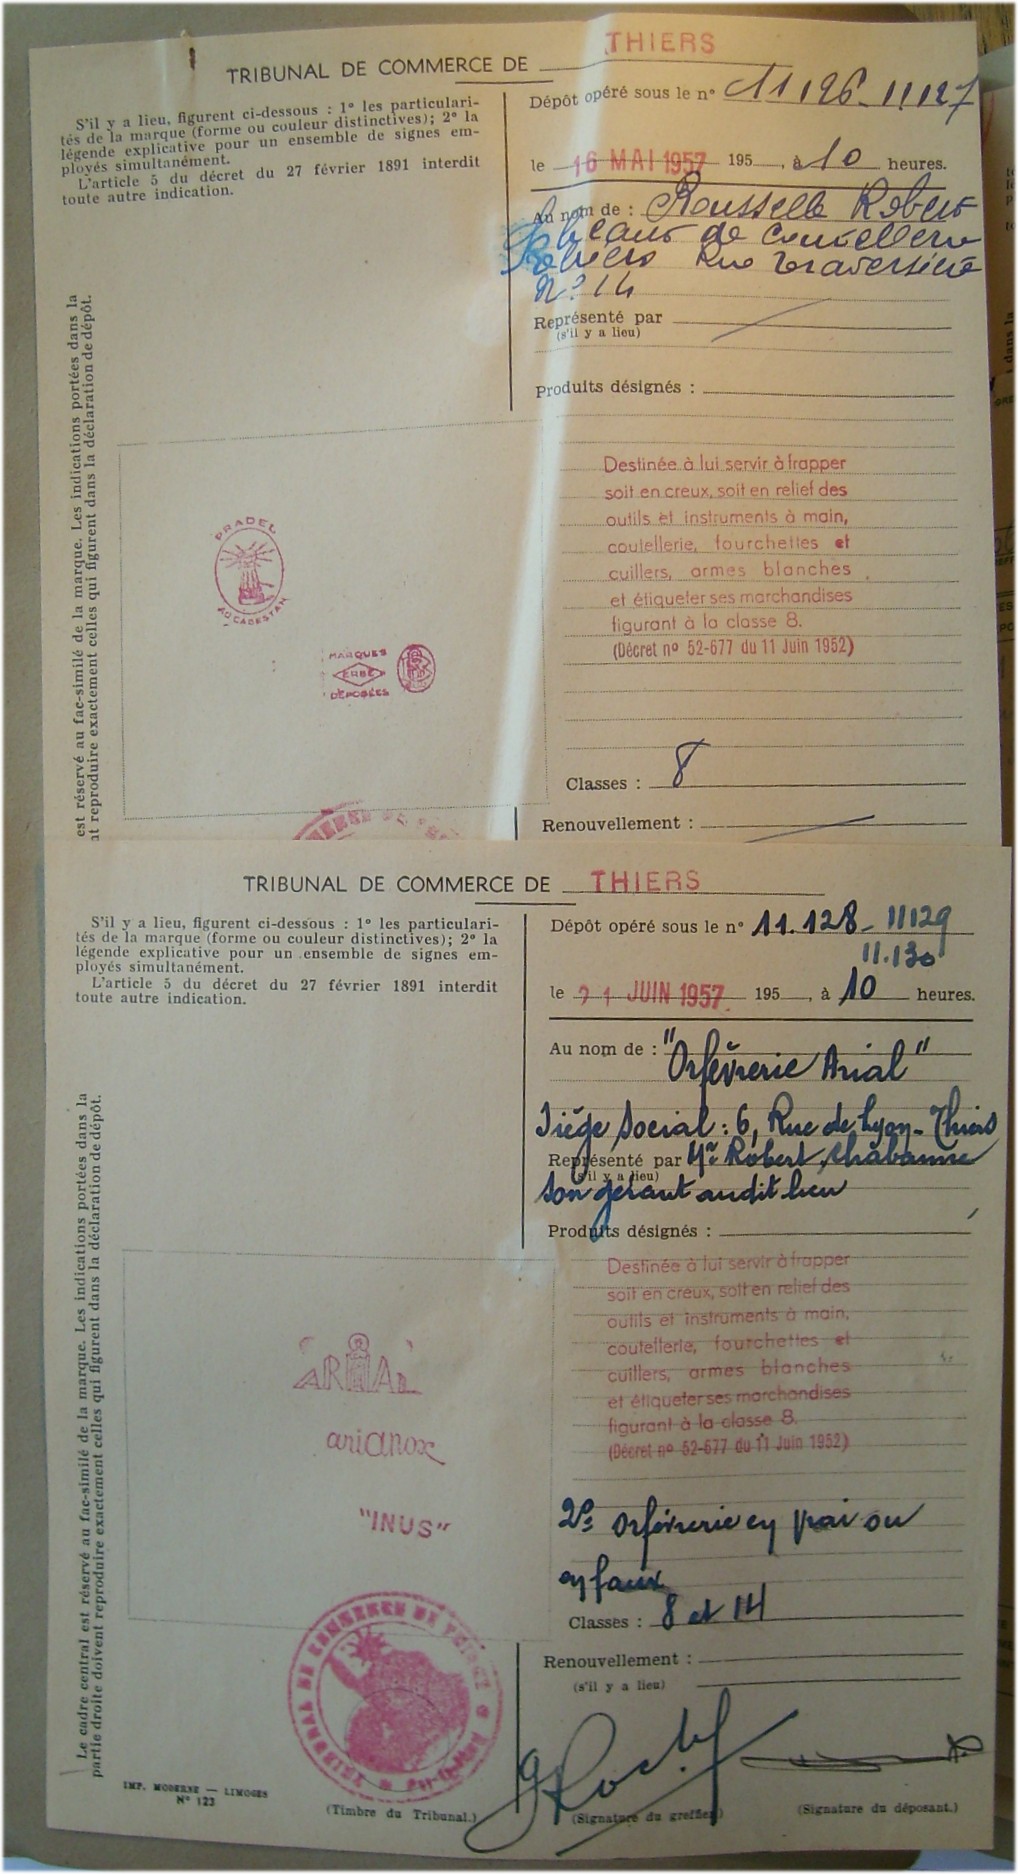 TRIBUNAL DE COMMERCE DE THIERS
S'il y a lieu, figurent ci-dessous : 1º les particulari-
tés de la marque (forme ou couleur distinctives); 2º la
légende explicative pour un ensemble de signes em-
ployés simultanément.
L'article 5 du décret du 27 février 1891 interdit
toute autre indication.
Dépôt opéré sous le nº 11126-11127
le 16 MAI 1957 195 , à 10 heures.
Au nom de : Rousselle Robert
Fabricant de coutellerie
Rue Traversière
Nº 14
Représenté par
(s'il y a lieu)
Produits désignés :
Destinée à lui servir à frapper
soit en creux, soit en relief des
outils et instruments à main,
coutellerie, fourchettes et
cuillers, armes blanches
et étiqueter ses marchandises
figurant à la classe 8.
(Décret nº 52-677 du 11 Juin 1952)
Classes : 8
Renouvellement :
est réservé au fac-similé de la marque. Les indications portées dans la
nt reproduire exactement celles qui figurent dans la déclaration de dépôt.
PRADEL
AU CABESTAN
MARQUES
ERBE
DÉPOSÉES
TRIBUNAL DE COMMERCE DE THIERS
S'il y a lieu, figurent ci-dessous : 1º les particulari-
tés de la marque (forme ou couleur distinctives); 2º la
légende explicative pour un ensemble de signes em-
ployés simultanément.
L'article 5 du décret du 27 février 1891 interdit
toute autre indication.
Dépôt opéré sous le nº 11.128-11129
11.130
le 21 JUIN 1957 195 , à 10 heures.
Au nom de : "Orfèvrerie Arial"
Siège Social : 6, Rue de Lyon - Thiers
Représenté par Mr Robert Chabanne
(s'il y a lieu)
son gérant audit lieu
Produits désignés :
Destinée à lui servir à frapper
soit en creux, soit en relief des
outils et instruments à main,
coutellerie, fourchettes et
cuillers, armes blanches
et étiqueter ses marchandises
figurant à la classe 8.
(Décret nº 52-677 du 11 Juin 1952)
2º Orfèvrerie en vrai ou
en faux
Classes : 8 et 14
Renouvellement :
(s'il y a lieu)
Le cadre central est réservé au fac-similé de la marque. Les indications portées dans la
partie droite doivent reproduire exactement celles qui figurent dans la déclaration de dépôt.
ARIAL
arianox
"INUS"
TRIBUNAL DE COMMERCE DE THIERS
IMP. MODERNE — LIMOGES
Nº 123
(Timbre du Tribunal.)
(Signature du greffier)
(Signature du déposant.)